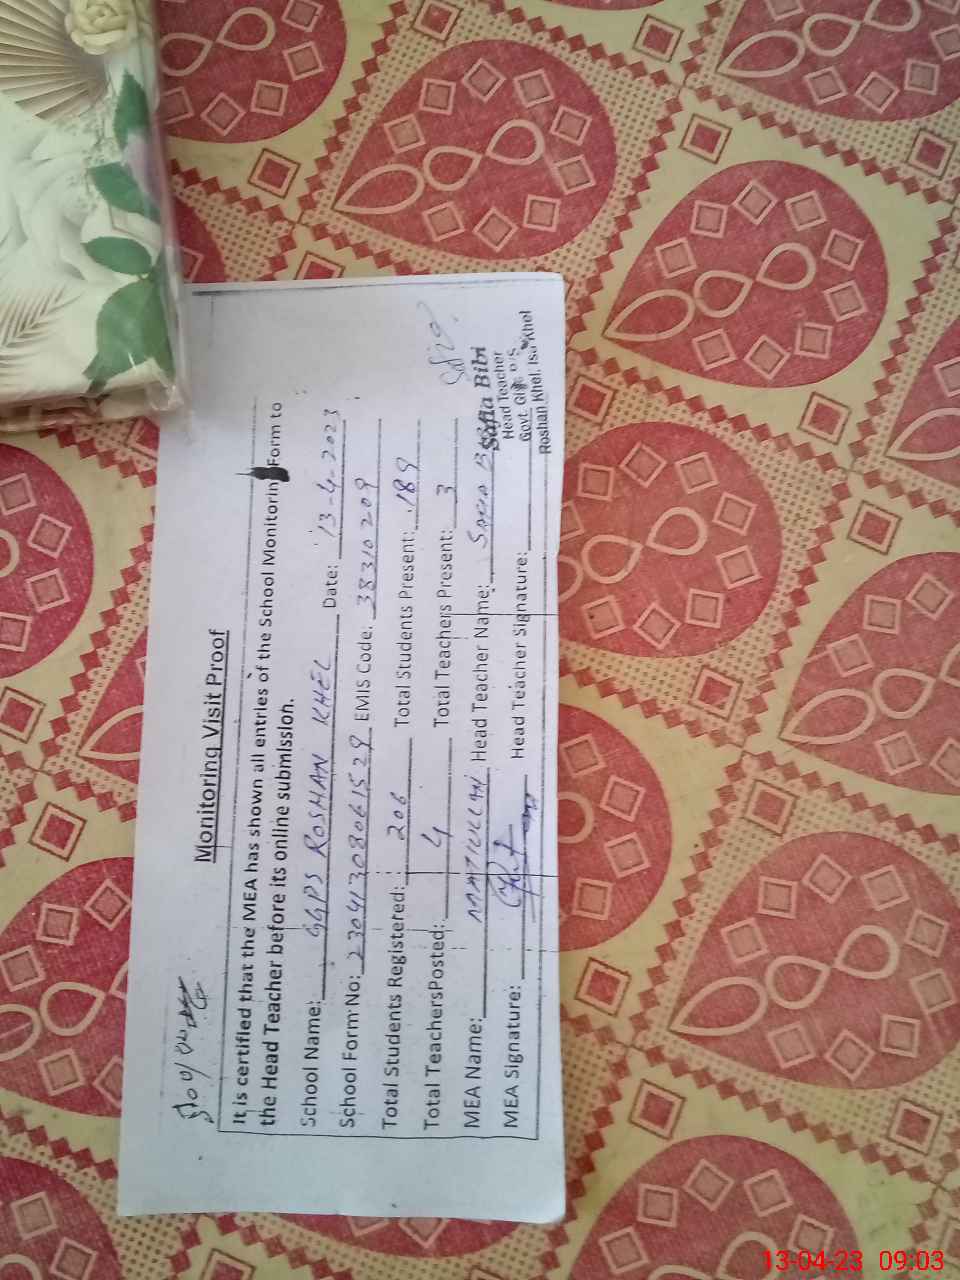 Monitoring Visit Proof
It is certified that the MEA has shown all entries of the School Monitorin Form to
the Head Teacher before its online submissloh.
School Name: GGPS ROSHAN KHEL Date: 13-4-2023
School Form No: 23041308061529 EMIS Code: 38310209
Total Students Registered: 206 Total Students Present: 189
Total TeachersPosted: 4 Total Teachers Present: 3
MEA Name: MATIULLAH Head Teacher Name: SAFIA BIBI
MEA Signature: Head Teacher Signature:
Safia Bibi
Head Teacher
Govt. P/S
Roshan Khel, Isa Khel
13-04-23 09:03